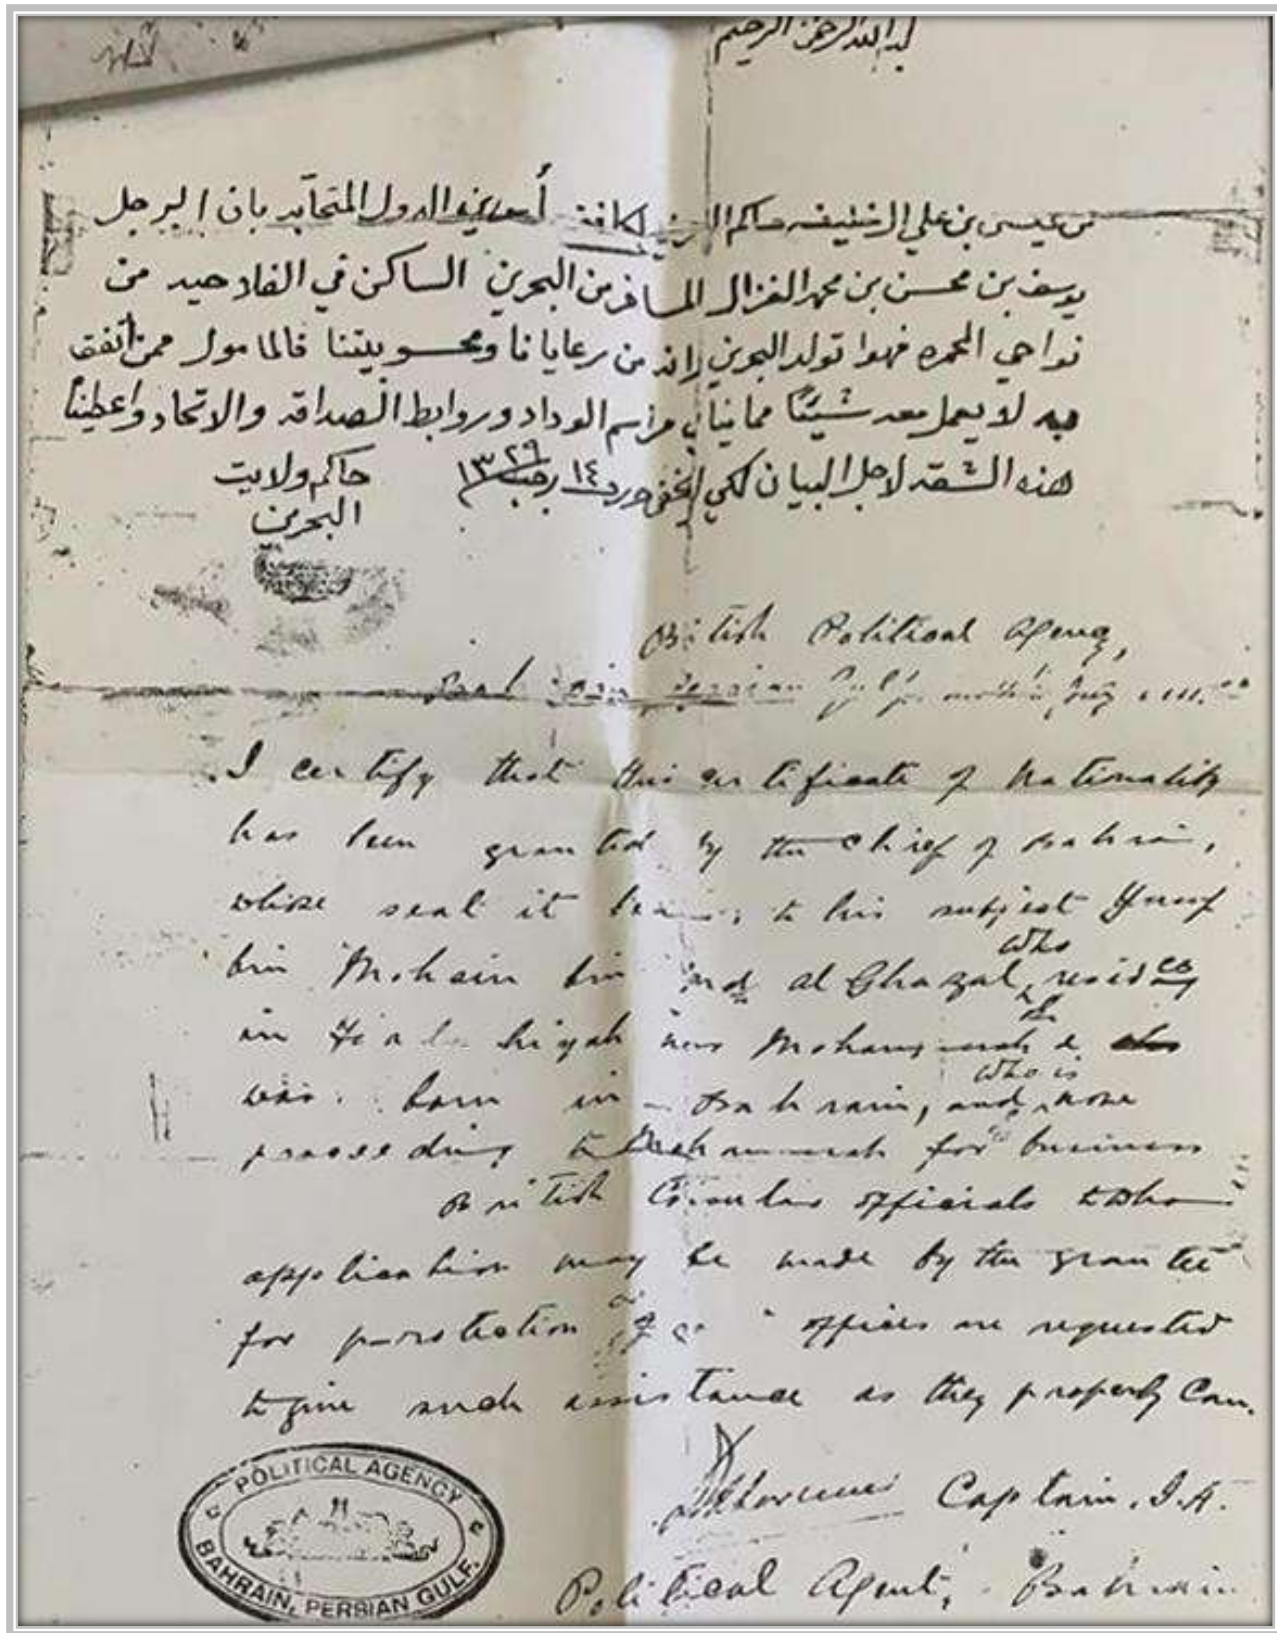 بسم الله الرحمن الرحيم
من عيسى بن علي الخليفه حاكم البحرين لكافة الدول المتحابه بان الرجل
يوسف بن محسن بن محمد الغزال المسافر من البحرين الساكن في من
نواحي المحمره فهوا تولد البحرين وانه من رعايانا ومحسوبيتنا فالمامول ممن اتفق
به لا يعمل معه شيئاً مما ينافي مراسم الوداد وروابط الصداقه والاتحاد واعطيناً
هذه الشقه لاجل البيان لكي لا يخفى حرر ١٤ رجب ١٣٢٩
حاكم ولايت
البحرين
British Political Agency,
Bahrain Persian Gulf
I certify that this certificate of Nationality
has been granted by the Chief of Bahrain,
whose seal it bears, to his subject Yusuf
bin Mohsin bin Md al Ghazal who resides
in near Mohammerah &
was born in Bahrain, and who is now
proceeding to Mohammerah for business
British Consular officials to whom
application may be made by the grantee
for protection offices are requested
to give such assistance as they properly can.
Captain, I.A.
Political Agent, Bahrain
POLITICAL AGENCY
BAHRAIN, PERSIAN GULF.